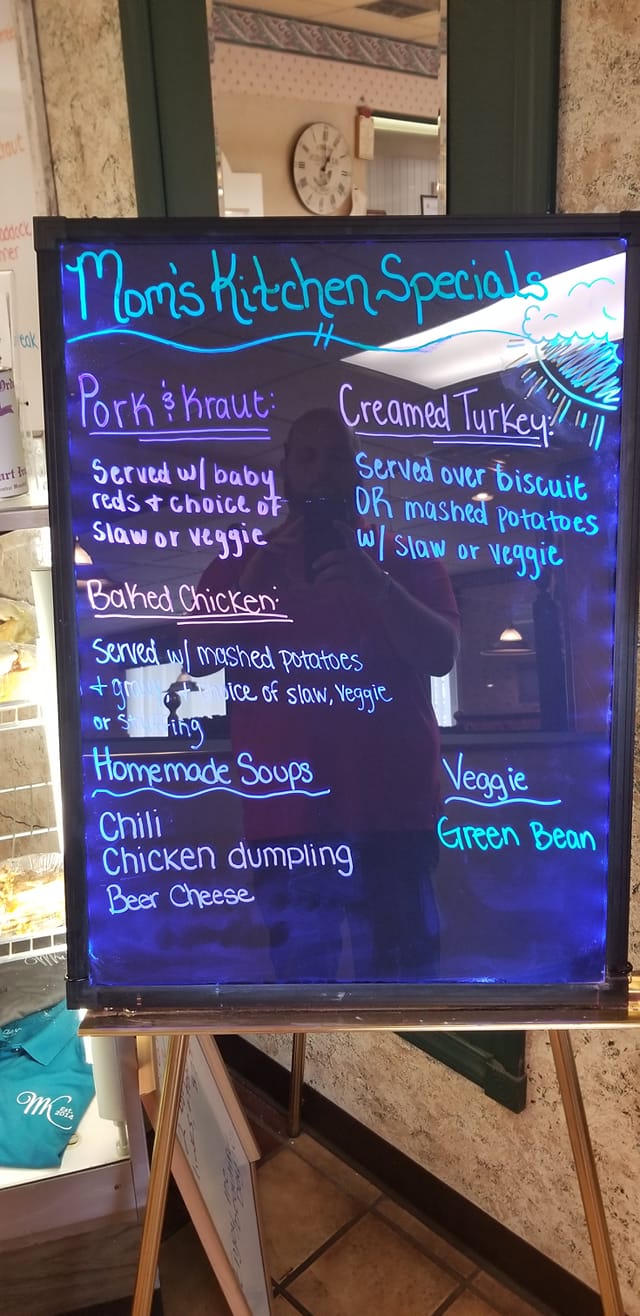 Mom's Kitchen Specials
Pork & Kraut:
Served w/ baby
reds + choice of
slaw or veggie
Creamed Turkey:
Served over biscuit
OR mashed potatoes
w/ slaw or veggie
Baked Chicken:
Served w/ mashed potatoes
+ gravy + choice of slaw, veggie
or stuffing
Homemade Soups
Chili
Chicken dumpling
Beer Cheese
Veggie
Green Bean
MK Est. 2014